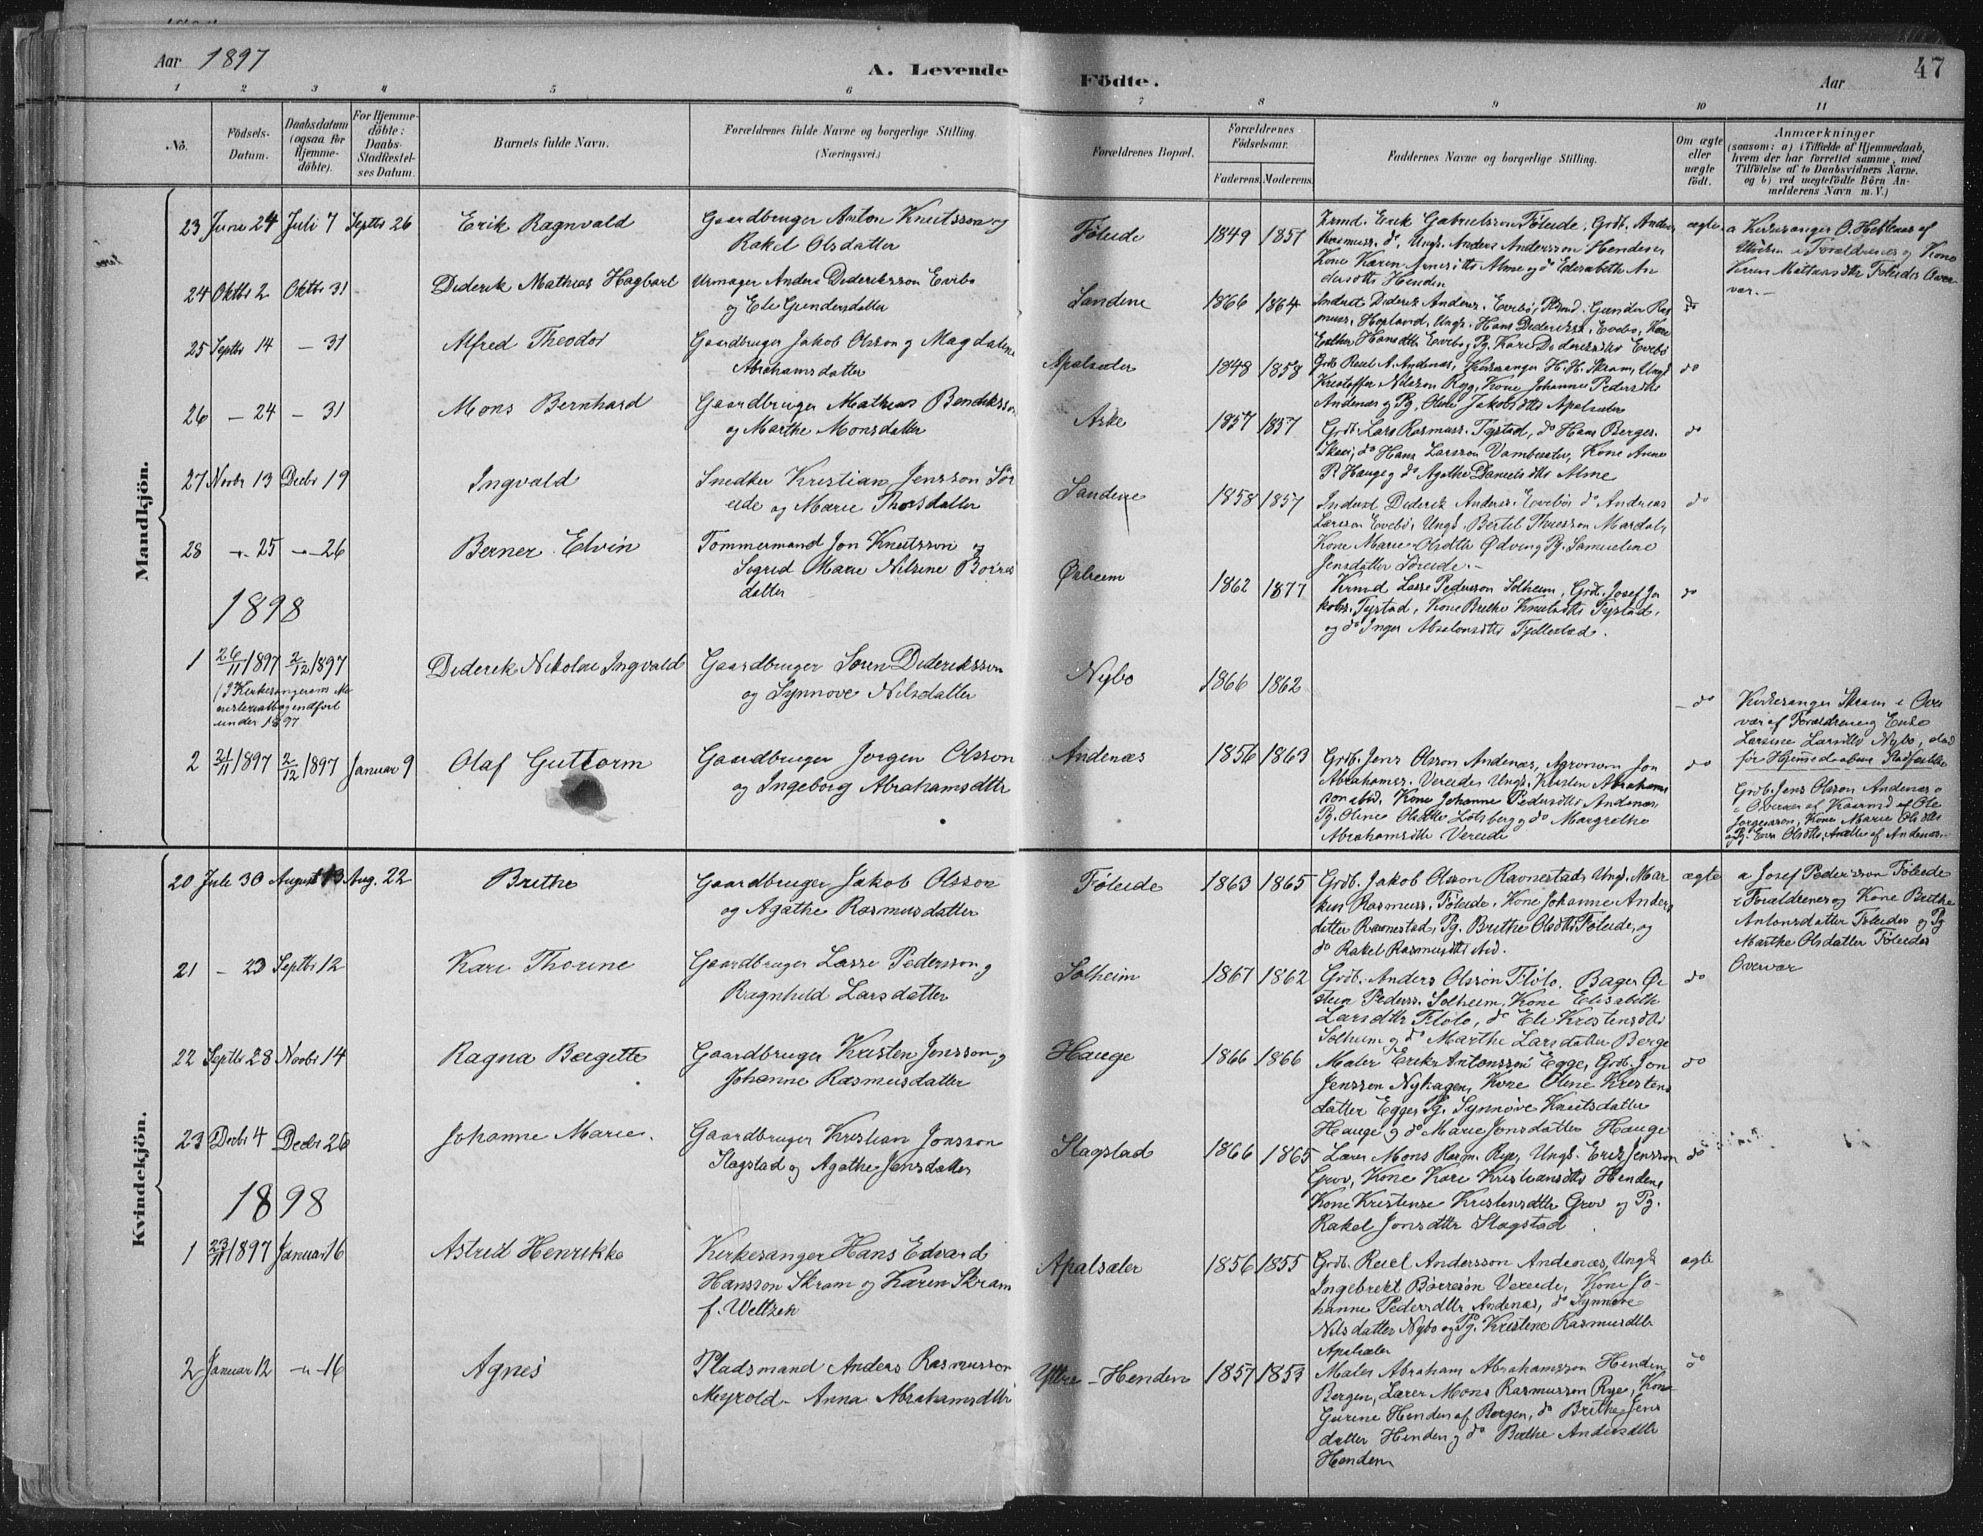 Aar 1897
A. Levende
Födte.
Aar
47
1 2 3 4 5 6 7 8 9 10 11
No.
Födsels-
Datum.
Daabsdatum
(ogsaa for
Hjemme-
döbte).
For Hjemme-
döbte:
Daabs-
Stadfæstel-
ses Datum.
Barnets fulde Navn.
Forældrenes fulde Navne og borgerlige Stilling.
(Næringsvei.)
Forældrenes Bopæl.
Forældrenes
Födselsaar.
Faderens. Moderens.
Faddernes Navne og borgerlige Stilling.
Om ægte
eller
uægte
födt.
Anmærkninger
(saasom: a) i Tilfælde af Hjemmedaab,
hvem der har forrettet samme, med
Tilföielse af to Daabsvidners Navne,
og b) ved uægtefödte Börn An-
melderens Navn m. V.)
Mandkjön.
23 Juni 24 Juli 7 Septbr 26 Erik Ragnvald Gaardbruger Anton Knutsson og
Rakel Olsdatter
Föleide 1849 1857
Krmd. Erik Gabrielsson Föleide, Grdb. Anders
Rasmuss. do, Ungk. Anders Andersson Henden
Kone Karen Arnesdtr Alme og do Elisabeth An
dersdtr Henden
ægte
a Kirkesanger O. Hestenes af
i Forældrenes og Kone
Karen Mattiasdtr Föleides Over
vær.
24 Oktbr 2 Oktbr 31 Diderik Mathias Hagbart Urmager Anders Dideriksson Evebö
og Eli Gundersdatter
Sandene 1866 1864
Inderst Diderik Anders. Evebö, Krmd. Gunder Ras
muss. Hopland, Ungk. Hans Diderikss. Evebö, Kone
Esther Hansdtr Evebö og Pg. Kari Dideriksdtr Evebö
do
25 Septbr 14 — 31 Alfred Theodor Gaardbruger Jakob Olsson og Magdalene
Abrahamsdatter
Apalsæter 1848 1858
Grdb. Reiel A. Andenæs, Kirkesanger H. H. Skram, Ungk
Kristoffer Nilsson Ryg, Kone Johanne Pedersdtr
Andenæs og Pg. Oline Jakobsdtr Apalsæter
do
26 — 24 — 31 Mons Bernhard Gaardbruger Mathias Bendiksson
og Marthe Monsdatter
Aske 1857 1857
Grdb. Lars Rasmuss. Tystad, do Hans Berges.
Skei, do Hans Larsson Vambesæter, Kone Anne
R. Hauge og do Agathe Danielsdtr Alme
do
27 Novbr 13 Decbr 19 Ingvald Snedker Kristian Jensson Sör
eide og Marie Thorsdatter
Sandene 1858 1857
Inderst Diderik Anders. Evebö, do Andreas
Larsson Evebö, Ungk. Bertel Thuesson Mardal,
Kone Marie Olsdtr Ödven og Pg. Samueline
Jensdatter Söreide.
do
28 — 25 — 26 Berner Elvin Tömmermand Jon Knutsson og
Sigrid Marie Nilsine Börres
datter
Öxlheim 1862 1877
Krmd Lasse Pedersson Solheim, Grdb. Josef Ja
kobs. Tystad, Kone Brithe Knutsdtr Tystad,
og do Inger Absalonsdtr Fjellestad.
do
1898
1 26/11 1897 2/12 1897 Diderik Nikolai Ingvald Gaardbruger Sören Dideriksson
og Synnove Nilsdatter
(I Kirkesangerens Mi
nisterialbog indfört
under 1897
Nybö 1866 1862
do
Kirkesanger Skram i Over
vær af Forældrene og Enke
Larsine Larsdtr Nybö, död
för Hjemmedaabens Stadfæstelse
2 21/11 1897 2/12 1897 Januar 9 Olaf Guttorm Gaardbruger Jørgen Olsson
og Ingeborg Abrahamsdtr
Andenæs 1856 1863
Grdb. Jens Olsson Andenæs, Agronom Jon
Abrahamss. Vereide, Ungk. Kristen Abrahams
son ibid. Kone Johanne Pedersdtr Andenæs
Pg. Oline Olsdtr Lötsberg og do Margrethe
Abrahamsdtr Vereide
do
Grdb. Jens Olsson Andenæs
i Overvær af Kaarmd af Ole
Jørgensson, Kone Marie Olsdtr
og Pg. Eva Olsdtr, Andenæs
Kvindekjön.
20 Juli 30 August 13 Aug. 22 Brithe Gaardbruger Jakob Olsson
og Agathe Rasmusdatter
Föleide 1863 1865
Grdb. Jakob Olsson Ravnestad, Ungk. Mar
kus Rasmuss. Föleide, Kone Johanne Anders
datter Ravnestad, Pg. Brithe Olsdtr Föleide, og
do Rakel Rasmusdtr ibid.
ægte
a Josef Pedersson Föleide
i Forældrenes og Kone Brithe
Antonsdatter Föleides og Pg
Marthe Olsdatter Föleides
Overvær
21 — 23 Septbr 12 Kari Thorine Gaardbruger Lasse Pedersson og
Ragnhild Larsdatter
Solheim 1867 1862
Grdb. Anders Olsson Flölo, Bager Öi
stein Pederss. Solheim, Kone Elisabeth
Larsdtr Flölo, do Eli Kristensdtr
Solheim og do Marthe Larsdatter Berge
do
22 Septbr 28 Novbr 14 Ragna Bergitte Gaardbruger Kristen Jonsson og
Johanne Rasmusdatter
Hauge 1866 1866
Maler Erik Antonsson Egge, Grdb. Jon
Jensson Nyhagen, Kone Oline Kristens
datter Egge, Pg. Synnöve Knutsdatter
Hauge og do Marie Jonsdatter Hauge
do
23 Decbr 4 Decbr 26 Johanne Marie. Gaardbruger Kristian Jonsson
Slagstad og Agathe Jensdatter
Slagstad 1866 1865
Lærer Mons Rasm. Rye, Ungk. Erik Jensson
Grov, Kone Kari Kristiansdtr Henden,
Kone Kristense Kristensdtr Grov og Pg.
Rakel Jonsdtr Slagstad
do
1898
1 23/11 1897 Januar 16 Astrid Henrikke Kirkesanger Hans Edvard
Hansson Skram og Karen Skram
f. Weltzen
Apalsæter 1856 1855
Grdb. Reiel Andersson Andenæs, Ungk
Ingebrekt Börresön Vereide, Kone Jo-
hanne Pedersdtr Andenæs, do Synnöve
Nilsdatter Nybö og Pg. Kristine Rasmusdtr
Apalsæter
ægte
2 Januar 12 — 16 Agnes Pladsmand Anders Rasmusson
Myrold - Anna Abrahamsdtr
Ytre-Henden 1857 1853
Maler Abraham Abrahamsson Henden,
Bergen, Lærer Mons Rasmusson Rye, Kone
Gurine Henden af Bergen, do Brithe Jens
datter Henden og do Brithe Andersdtr
Henden
do